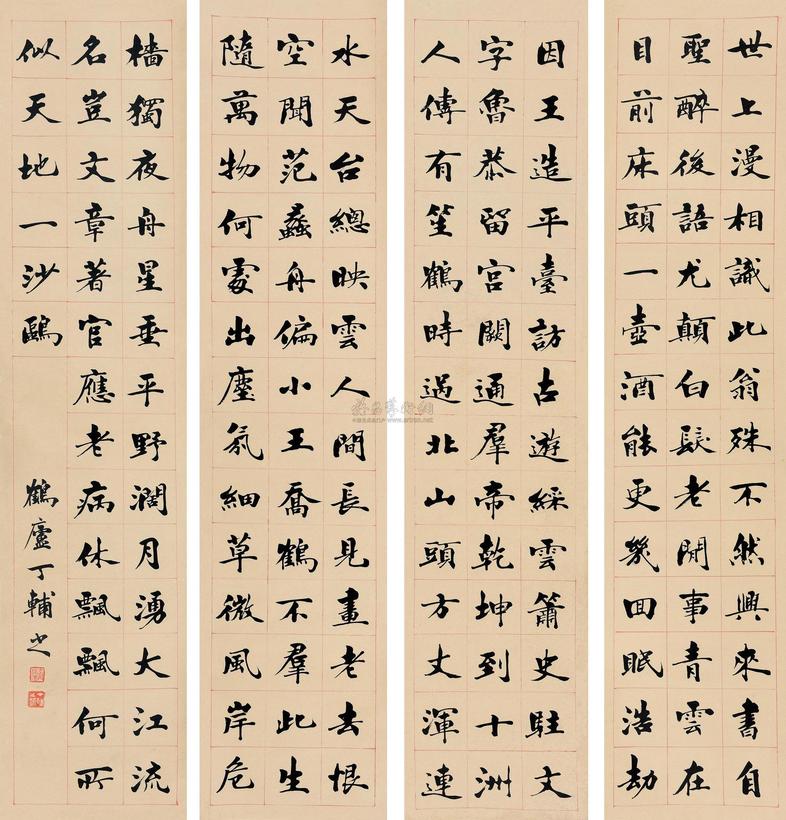 世上漫相識此翁殊不然興來書自
聖醉後語尤顛白髮老閒事青雲在
目前床頭一壺酒能更幾回眠浩劫
因王造平臺訪古遊綵雲簫史駐文
字魯恭留宮闕通羣帝乾坤到十洲
人傳有笙鶴時過北山頭方丈渾連
水天台總映雲人間長見畫老去恨
空聞范蠡舟偏小王喬鶴不羣此生
隨萬物何處出塵氛細草微風岸危
檣獨夜舟星垂平野濶月湧大江流
名豈文章著官應老病休飄飄何所
似天地一沙鷗
鶴廬丁輔之